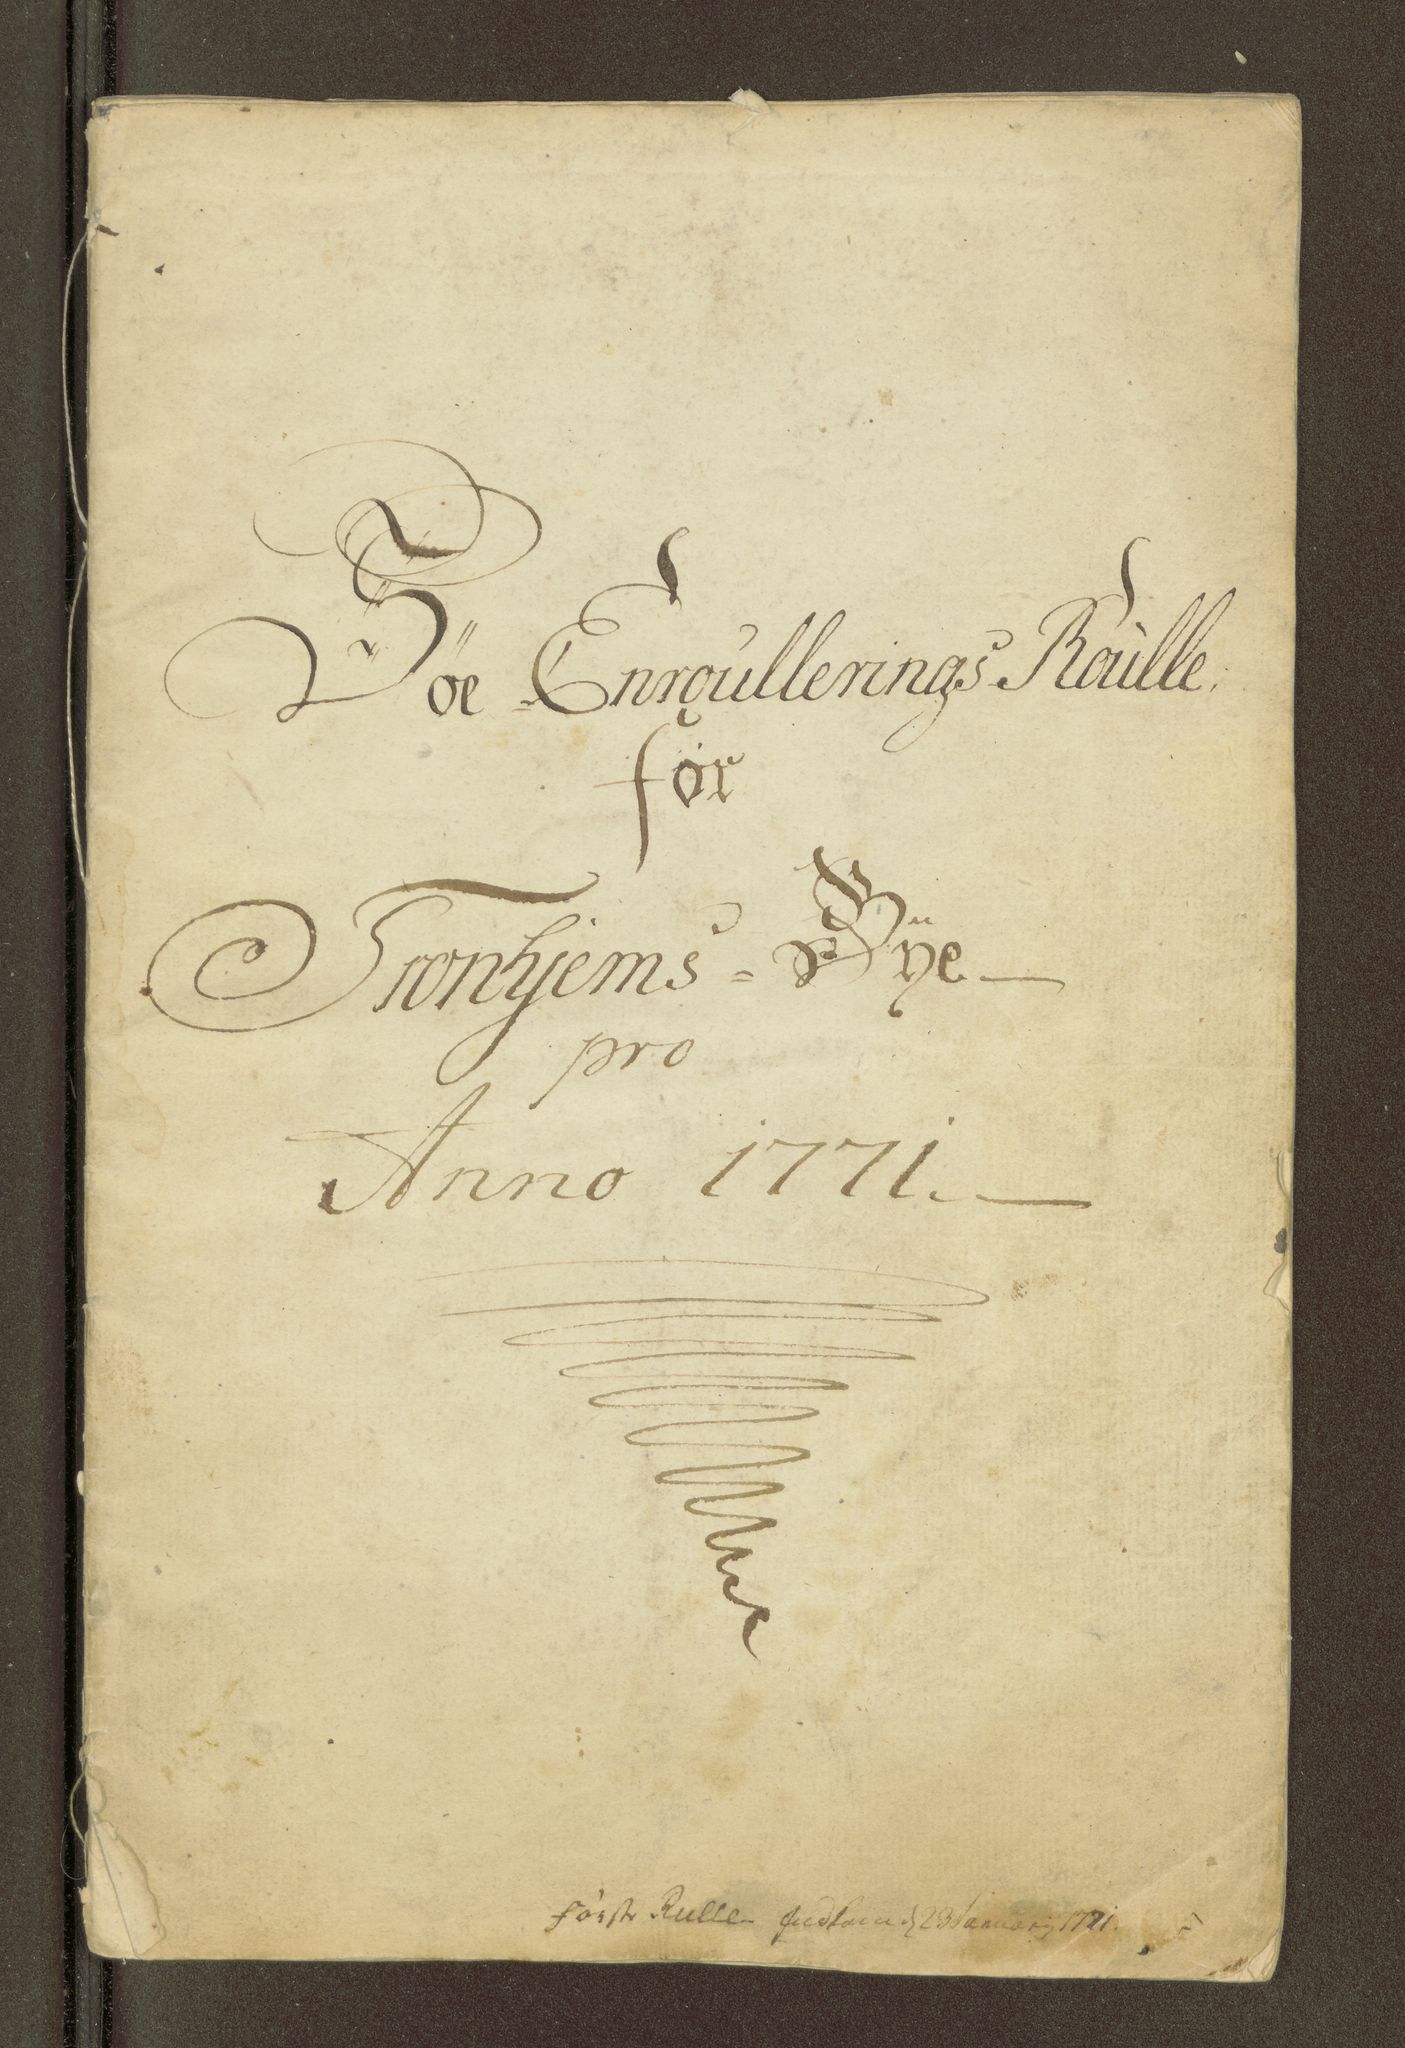 Söe-Enroullerings Roulle.
for
Tronhjems=Bÿe
pro
Anno 1771.
Förste Rulle Indkom d 23 January 1771.